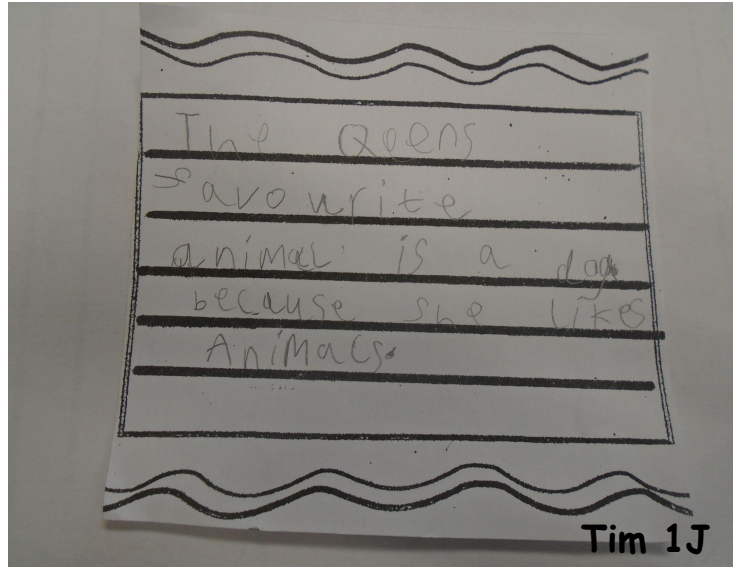 The Qeens
favourite
animal is a dog
because she likes
Animals.
Tim 1J